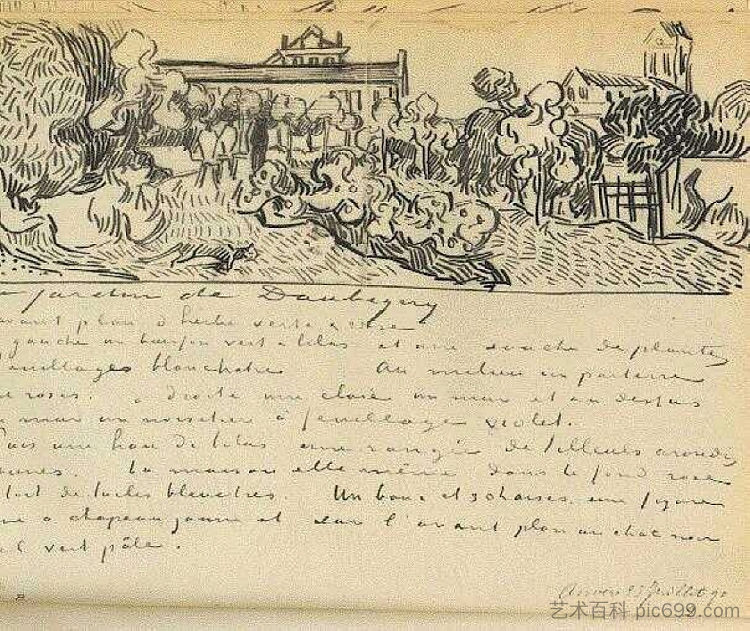 jardin de Daubigny
avant plan d'herbe verte & rose
gauche un buisson vert & lilas et une souche de plantes
feuillages blanchatre Au milieu un parterre
de roses. à droite une claie un mur et au dessus
mur un noisetier à feuillage violet.
une haie de lilas une rangée de tilleuls arrondis
jaunes. La maison elle même dans le fond rose
toit de tuiles bleuatres. Un banc et 3 chaises une figure
à chapeau jaune et sur l'avant plan un chat noir
vert pâle.
Auvers 23 juillet 90
艺术百科 pic699.com